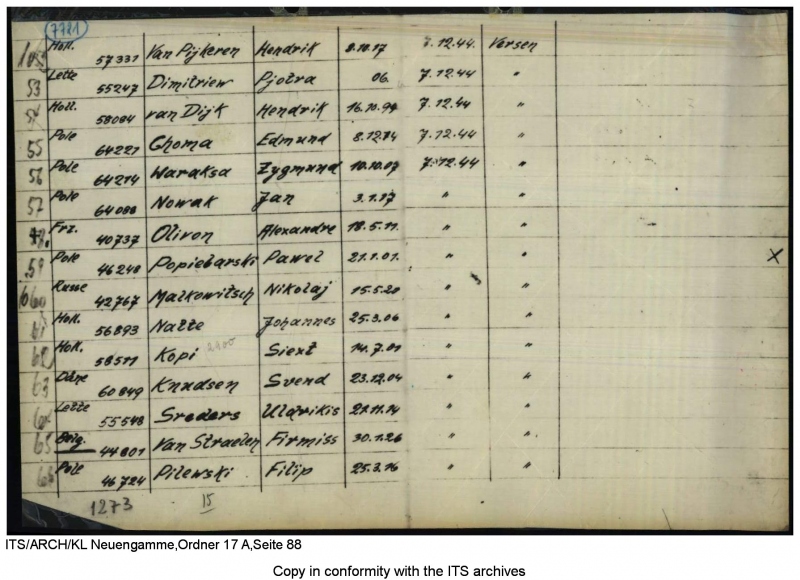 7721
Holl. 57331 Van Pijkeren Hendrik 8.10.17 7.12.44. Versen
53 Lette 55247 Dimitriew Pjotra 06. 7.12.44 "
54 Holl. 58084 van Dijk Hendrik 7.12.44 "
55 Pole 64221 Choma Edmund 7.12.44 "
56 Pole 64214 Waraksa Zygmund 10.10.07 7.12.44 "
57 Pole 64088 Nowak Jan 3.1.17 " "
Frz. 40737 Oliron Alexandre 18.5.11. " "
59 Pole 46248 Popielarski Pawel 21.1.01. " " X
Russe 42767 Malkowitsch Nikolaj 15.5.20 " "
61 Holl. 56893 Natte Johannes 25.3.06 " "
62 Holl. 58511 Kopi Siext 14.7.01 " "
63 Däne 60849 Knudsen Svend 23.12.04 " "
64 Lette 55548 Sreders Uldrikis 21.11.14 " "
65 Belg. 44801 Van Straelen Firmiss 30.1.26 " "
66 Pole 46724 Pilewski Filip 25.3.16 " "
1273 15
ITS/ARCH/KL Neuengamme,Ordner 17 A,Seite 88
Copy in conformity with the ITS archives